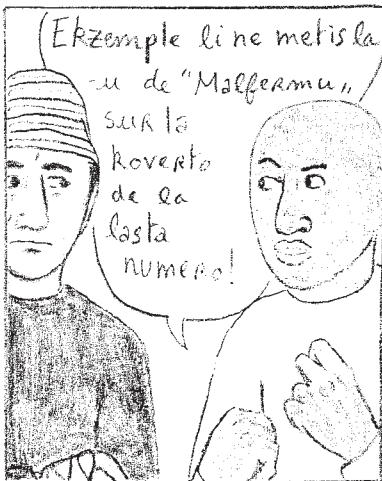 Ekzemple li ne metis la
-u de "Malfermu"
sur la
koverto
de la
lasta
numero!